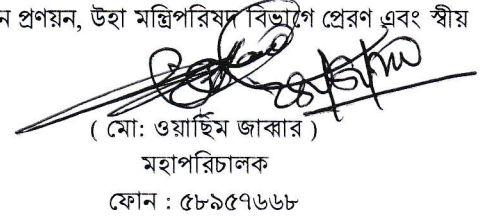 ন প্রণয়ন, উহা মন্ত্রিপরিষদ বিভাগে প্রেরণ এবং স্বীয়
( মো: ওয়াছিম জাব্বার )
মহাপরিচালক
ফোন : ৫৮৯৫৭৬৬৮